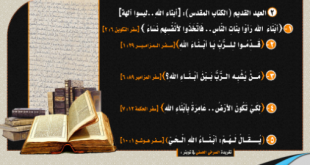 ٢ العهد القديم (الكتاب المقدس): [أبناء الله ..ليسوا آلهة]
١ (أبناء الله رأوا بنات الناس.. فاتخذوا لأنفسهم نساء) [سفر التكوين ٦:٢]
٢ قدموا للرب يا أبناء الله [سفر المزامير ٢٩:١]
٣ من يشبه الرب بين أبناء الله؟ [سفر المزامير ٨٩:٦]
٤ لكي تكون الأرض.. عامرة بأبناء الله [سفر الحكمة ١٢:٧]
٥ يقال لهم: أبناء الله الحي [سفر هوشع ١:١٠]